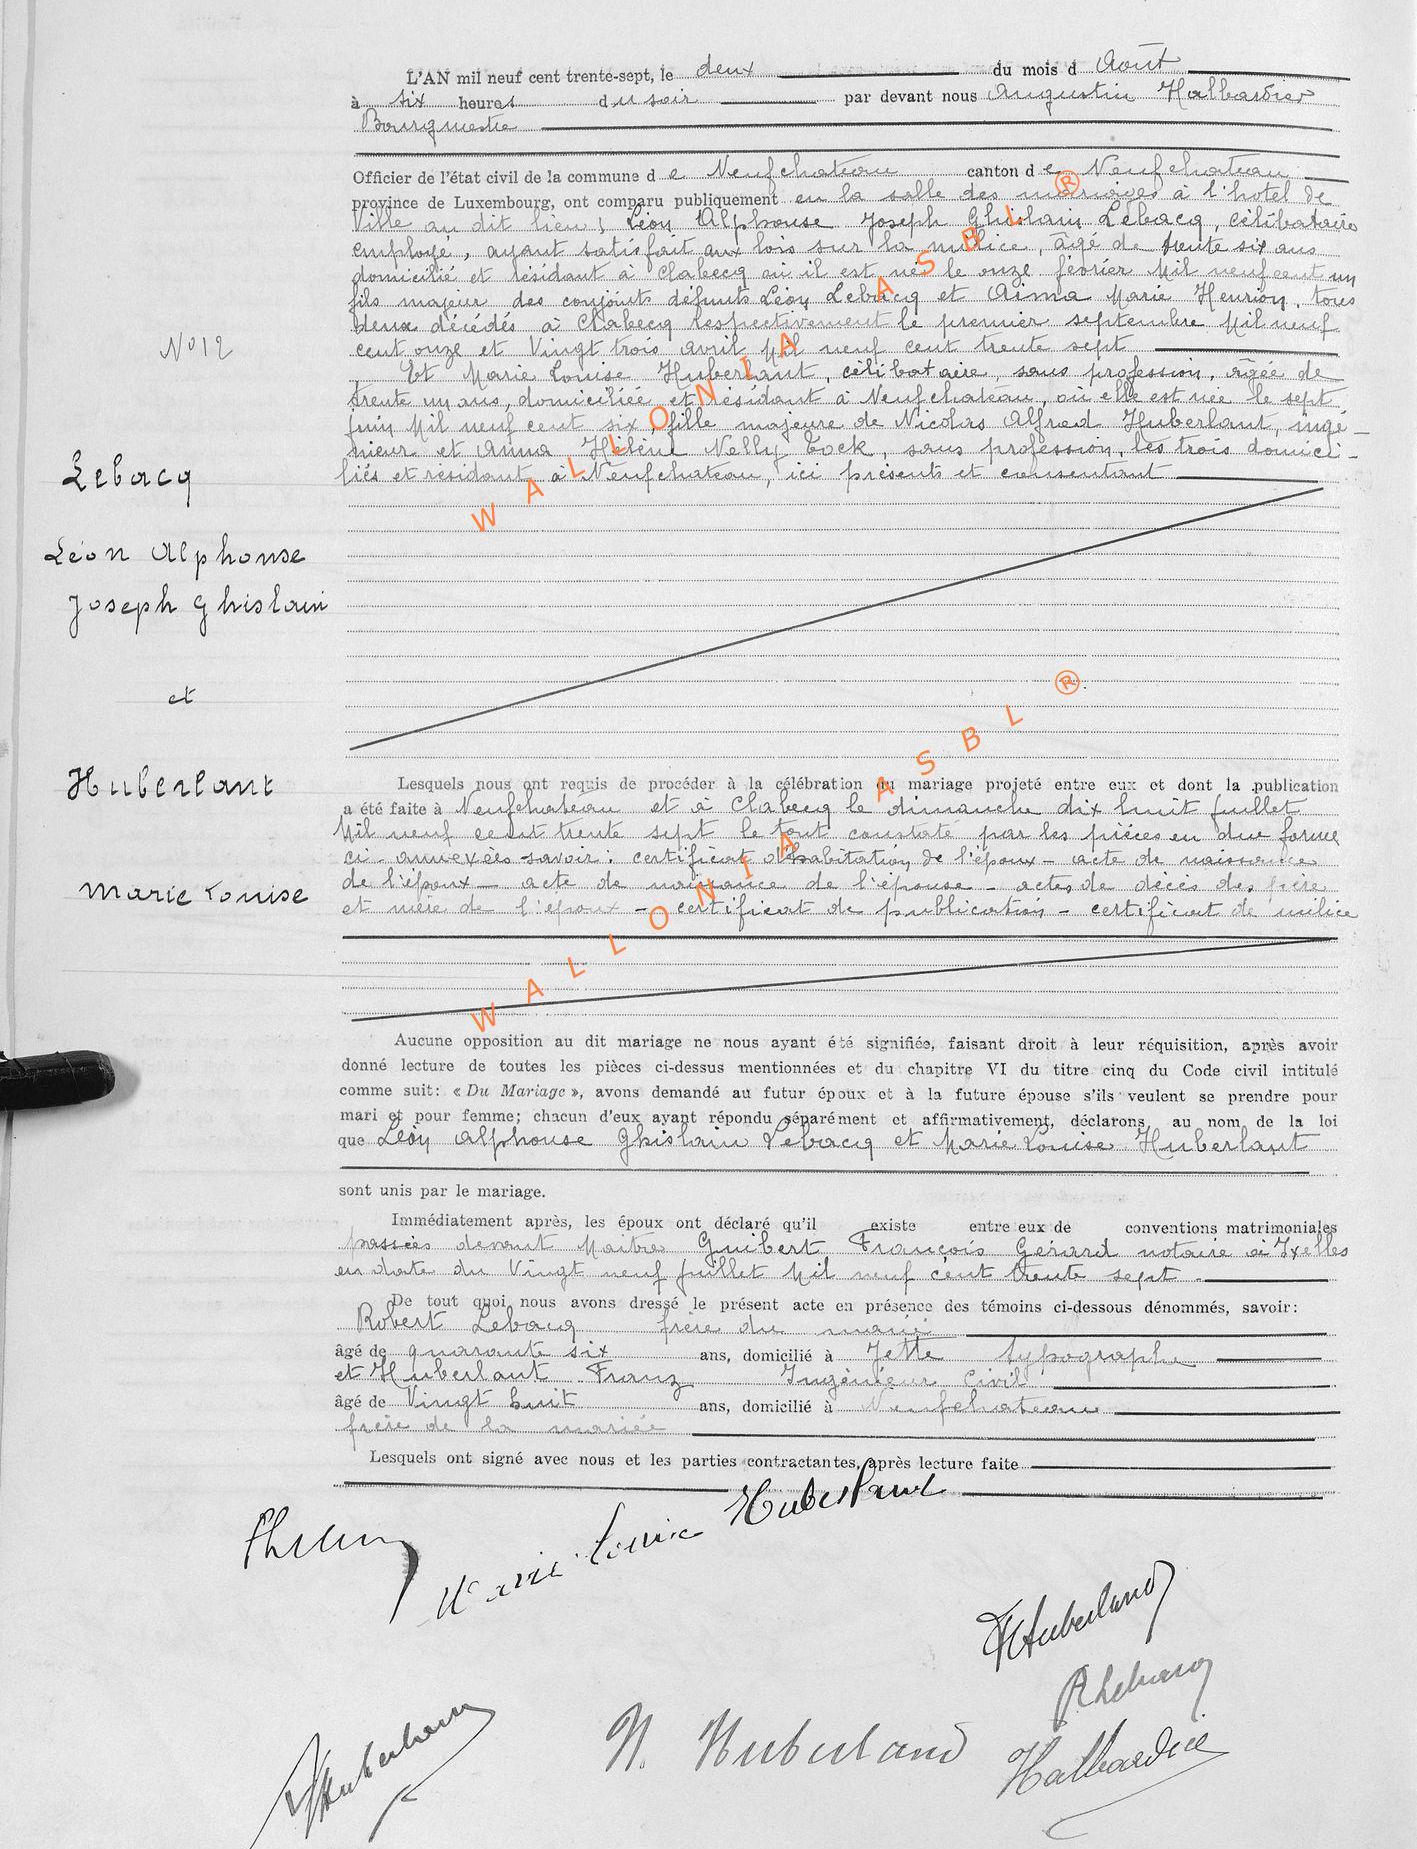 L'AN mil neuf cent trente-sept, le deux du mois d Août
à six heures du soir par devant nous Augustin Halbardier
Bourgmestre
Officier de l'état civil de la commune de Neufchateau canton de Neufchateau
province de Luxembourg, ont comparu publiquement en la salle des mariages à l'hotel de
Ville au dit lieu, Léon Alphonse Joseph Ghislain Lebacq, célibataire
employé, ayant satisfait aux lois sur la milice, âgé de trente six ans
domicilié et résidant à Clabecq où il est né le onze février Mil neuf cent un
fils majeur des conjoints défunts Léon Lebacq et Aima Marie Henrion, tous
deux décédés à Clabecq respectivement le premier septembre Mil neuf
cent onze et Vingt trois avril Mil neuf cent trente sept
N° 12
Et Marie Louise Huberlant, célibataire, sans profession, âgée de
trente un ans, domiciliée et résidant à Neufchateau, où elle est née le sept
juin Mil neuf cent six, fille majeure de Nicolas Alfred Huberlant, ingé-
nieur et Anna Hélène Nelly Tock, sans profession, les trois domici-
liés et résidant à Neufchateau, ici présents et consentant
Lebacq
Léon Alphonse
Joseph Ghislain
et
Huberlant
Marie Louise
WALLONIA ASBL ®
Lesquels nous ont requis de procéder à la célébration du mariage projeté entre eux et dont la publication
a été faite à Neufchateau et à Clabecq le dimanche dix huit juillet
Mil neuf cent trente sept le tout constaté par les pièces en due forme
ci-annexées savoir: certificat d'habitation de l'époux - acte de naissance
de l'époux - acte de naissance de l'épouse - actes de décès des père
et mère de l'époux - certificat de publication - certificat de milice
WALLONIA ASBL ®
Aucune opposition au dit mariage ne nous ayant été signifiée, faisant droit à leur réquisition, après avoir
donné lecture de toutes les pièces ci-dessus mentionnées et du chapitre VI du titre cinq du Code civil intitulé
comme suit: « Du Mariage », avons demandé au futur époux et à la future épouse s'ils veulent se prendre pour
mari et pour femme; chacun d'eux ayant répondu séparément et affirmativement, déclarons, au nom de la loi
que Léon Alphonse Ghislain Lebacq et Marie Louise Huberlant
sont unis par le mariage.
Immédiatement après, les époux ont déclaré qu'il existe entre eux de conventions matrimoniales
passées devant Maitre Guibert François Gérard notaire à Ixelles
en date du Vingt neuf juillet Mil neuf cent trente sept.
De tout quoi nous avons dressé le présent acte en présence des témoins ci-dessous dénommés, savoir:
Robert Lebacq frère du marié
âgé de quarante six ans, domicilié à Jette typographe
et Huberlant Franz Ingénieur Civil
âgé de Vingt huit ans, domicilié à Neufchateau
frère de la mariée
Lesquels ont signé avec nous et les parties contractantes, après lecture faite
Marie Louise Huberlant
FHuberland
RLebacq
N. Huberland
Halbardier